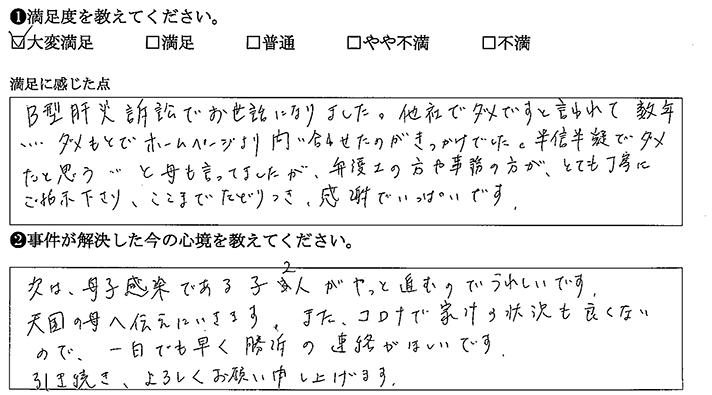 ❶満足度を教えてください。
☑大変満足 □満足 □普通 □やや不満 □不満
満足に感じた点
B型肝炎訴訟でお世話になりました。他社でダメですと言われて数年
‥‥ダメもとでホームページより問い合わせたのがきっかけでした。半信半疑でダメ
だと思う‥と母も言ってましたが、弁護士の方や事務の方が、とても丁寧に
ご指示下さり、ここまでたどりつき、感謝でいっぱいです。
❷事件が解決した今の心境を教えてください。
次は、母子感染である子2人がやっと進むのでうれしいです。
天国の母へ伝えにいきます。また、コロナで家計の状況も良くない
ので、一日でも早く勝訴の連絡がほしいです。
引き続き、よろしくお願い申し上げます。